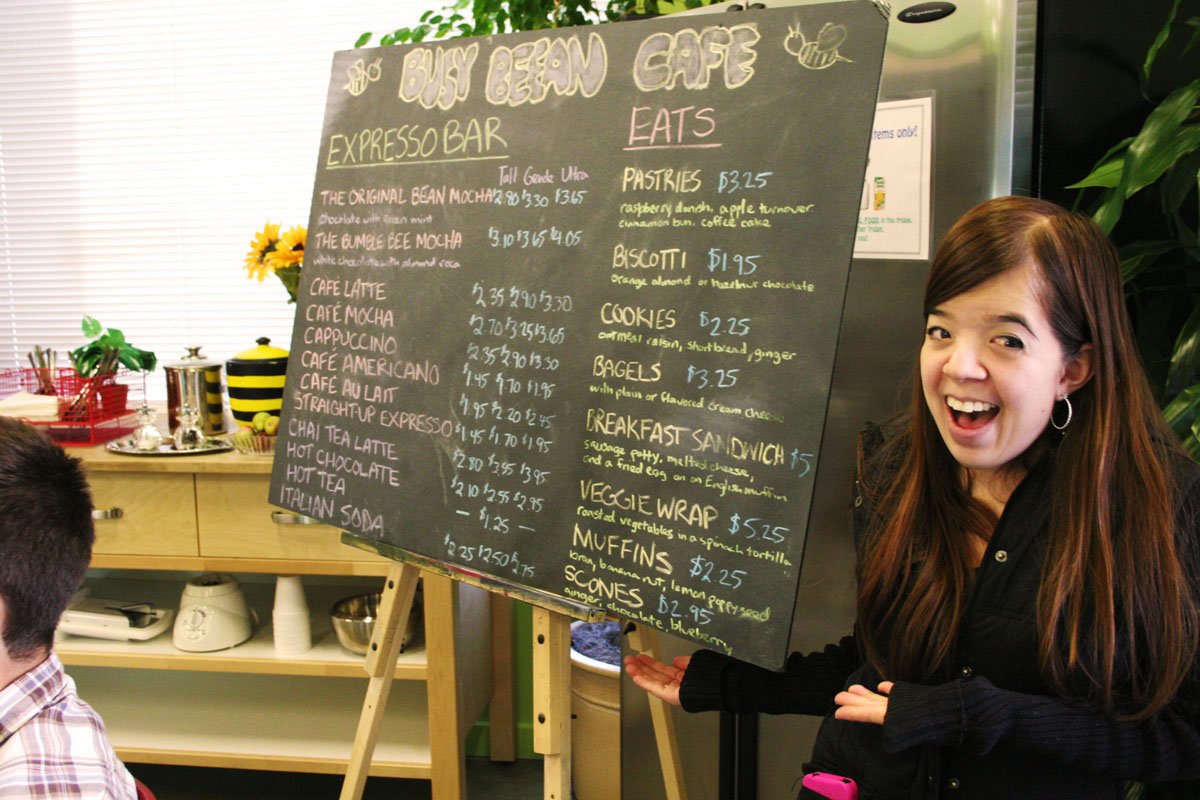 BUSY BEEAN CAFE
EXPRESSO BAR
Tall Grande Ultra
THE ORIGINAL BEAN MOCHA $2.90 $3.30 $3.65
chocolate with green mint
THE BUMBLE BEE MOCHA $3.10 $3.65 $4.05
white chocolate with almond roca
CAFE LATTE $2.35 $2.90 $3.30
CAFE MOCHA $2.70 $3.25 $3.65
CAPPUCCINO $2.35 $2.90 $3.30
CAFÉ AMERICANO $1.45 $1.70 $1.95
CAFÉ AU LAIT $1.95 $2.20 $2.45
STRAIGHT-UP EXPRESSO $1.45 $1.70 $1.95
CHAI TEA LATTE $2.80 $3.55 $3.95
HOT CHOCOLATE $2.10 $2.55 $2.95
HOT TEA — $1.25 —
ITALIAN SODA $2.25 $2.50 $2.75
EATS
PASTRIES $3.25
raspberry danish, apple turnover
cinnamon bun, coffee cake
BISCOTTI $1.95
orange almond or hazelnut chocolate
COOKIES $2.25
oatmeal raisin, shortbread, ginger
BAGELS $3.25
with plain or flavored cream cheese
BREAKFAST SANDWICH $5
sausage patty, melted cheese,
and a fried egg on an English muffin
VEGGIE WRAP $5.25
roasted vegetables in a spinach tortilla
MUFFINS $2.25
bran, banana nut, lemon poppy seed
SCONES $2.95
ginger, chocolate, blueberry
items only!
FOOD in this fridge.